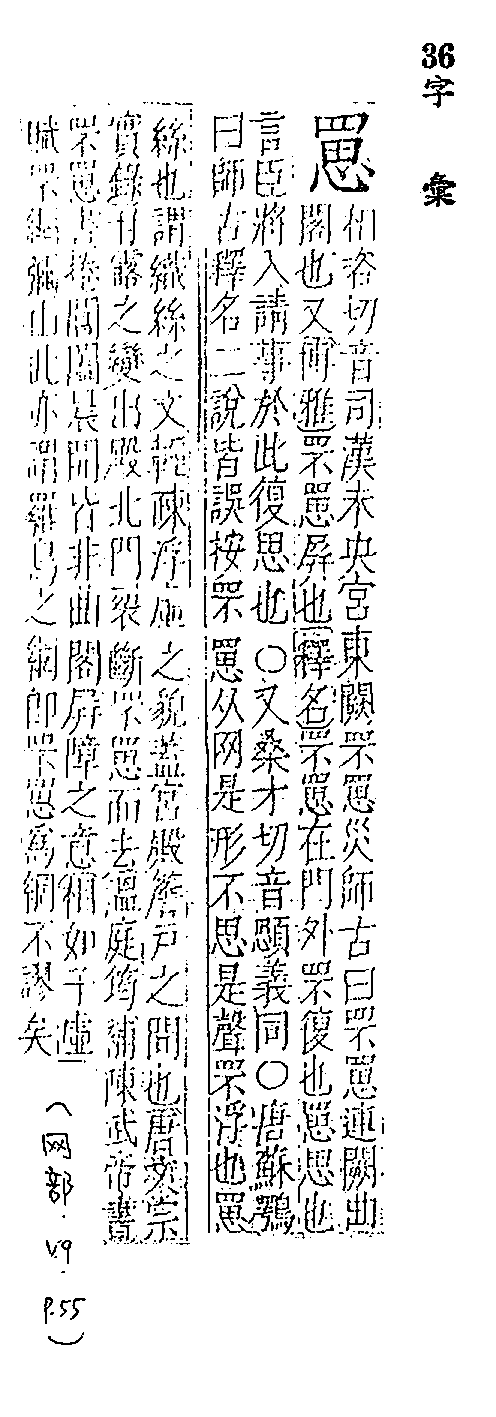 36字彙
罳
相咨切音司漢未央宮東闕罘罳災師古曰罘罳連闕曲
閣也又爾雅罘罳屏也釋名罘罳在門外罘復也罳思也
言臣將入請事於此復思也○又桑才切音顋義同○唐蘇鶚
曰師古釋名二說皆誤按罘罳从网是形不思是聲罘浮也罳
絲也謂織絲之文輕疎浮虛之貌蓋宮殿簷戶之間也唐文宗
實錄甘露之變出殿北門裂斷罘罳而去溫庭筠補陳武帝書
罘罳晝捲閶闔晨開皆非曲閣屏障之意相如子虛
賦罘網彌山此亦謂羅鳥之網卽罘罳爲網不謬矣
(网部.V9.P.55)